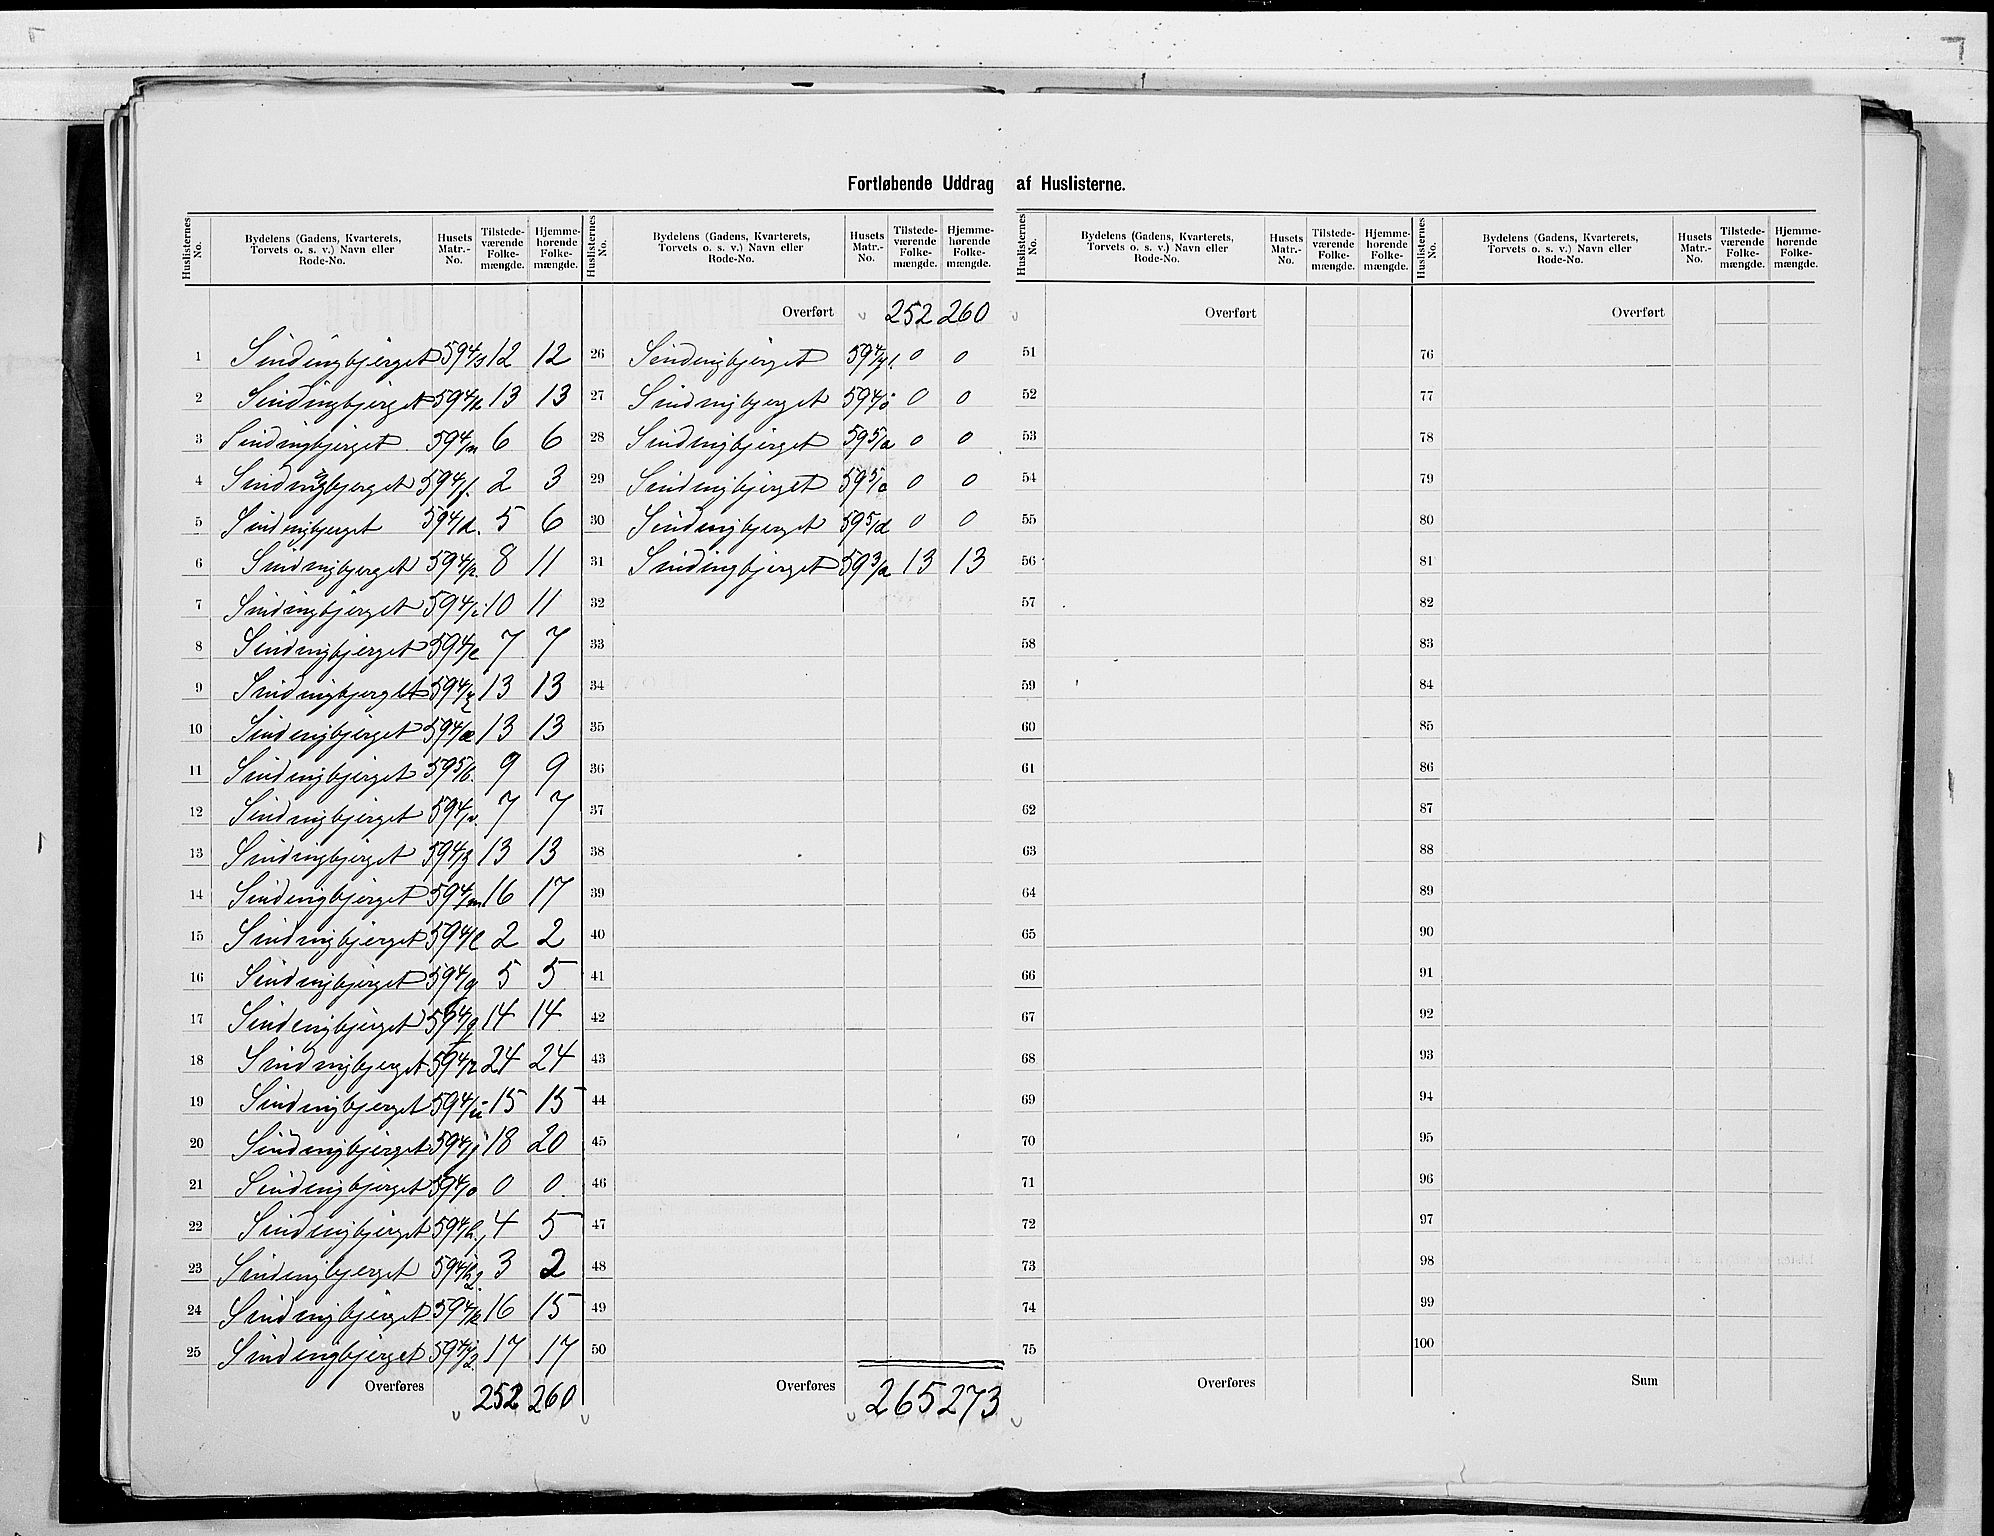 Fortløbende Uddrag af Huslisterne.
Huslisternes No. Bydelens (Gadens, Kvarterets, Torvets o. s. v.) Navn eller Rode-No. Husets Matr.-No. Tilstede-værende Folke-mængde. Hjemme-hørende Folke-mængde.
Huslisternes No. Bydelens (Gadens, Kvarterets, Torvets o. s. v.) Navn eller Rode-No. Husets Matr.-No. Tilstede-værende Folke-mængde. Hjemme-hørende Folke-mængde.
Huslisternes No. Bydelens (Gadens, Kvarterets, Torvets o. s. v.) Navn eller Rode-No. Husets Matr.-No. Tilstede-værende Folke-mængde. Hjemme-hørende Folke-mængde.
Huslisternes No. Bydelens (Gadens, Kvarterets, Torvets o. s. v.) Navn eller Rode-No. Husets Matr.-No. Tilstede-værende Folke-mængde. Hjemme-hørende Folke-mængde.
Overført 252 260 Overført Overført
1 Sindingbjerget 594/s 12 12 26 Sindingbjerget 0 0 51 76
2 Sindingbjerget 594/k 13 13 27 Sindingbjerget 594/ö 0 0 52 77
3 Sindingbjerget 594/n 6 6 28 Sindingbjerget 595/a 0 0 53 78
4 Sindingbjerget 594/f. 2 3 29 Sindingbjerget 595/c 0 0 54 79
5 Sindingbjerget 594/d. 5 6 30 Sindingbjerget 595/d 0 0 55 80
6 Sindingbjerget 594/r. 8 11 31 Sindingbjerget 593/a 13 13 56 81
7 Sindingbjerget 594/i 10 11 32 57 82
8 Sindingbjerget 594/e 7 7 33 58 83
9 Sindingbjerget 13 13 34 59 84
10 Sindingbjerget 594/æ 13 13 35 60 85
11 Sindingbjerget 595/b. 9 9 36 61 86
12 Sindingbjerget 594/v. 7 7 37 62 87
13 Sindingbjerget 13 13 38 63 88
14 Sindingbjerget 594/m 16 17 39 64 89
15 Sindingbjerget 594/l 2 2 40 65 90
16 Sindingbjerget 594/g 5 5 41 66 91
17 Sindingbjerget 594/q 14 14 42 67 92
18 Sindingbjerget 24 24 43 68 93
19 Sindingbjerget 594/ü 15 15 44 69 94
20 Sindingbjerget 594/j 18 20 45 70 95
21 Sindingbjerget 594/o 0 0. 46 71 96
22 Sindingbjerget 594/h, 4 5 47 72 97
23 Sindingbjerget 594/h2 3 2 48 73 98
24 Sindingbjerget 16 15 49 74 99
25 Sindingbjerget 17 17 50 75 100
Overføres 252 260 Overføres 265 273 Overføres Sum